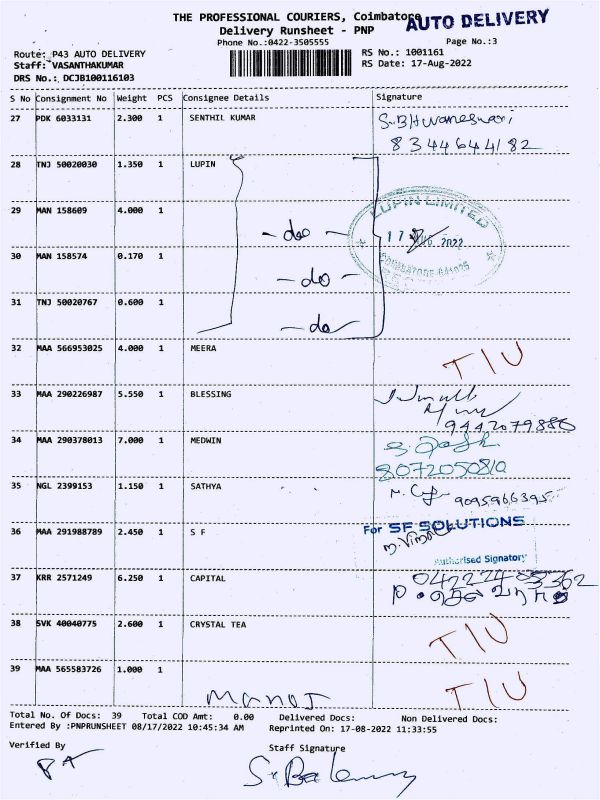 THE PROFESSIONAL COURIERS, Coimbatore
AUTO DELIVERY
Delivery Runsheet - PNP
Phone No.:0422-3505555
Page No.:3
Route: P43 AUTO DELIVERY
RS No.: 1001161
Staff: VASANTHAKUMAR
RS Date: 17-Aug-2022
DRS No.: DCJB100116103
S No Consignment No Weight PCS Consignee Details Signature
27 PDK 6033131 2.300 1 SENTHIL KUMAR S.BHuvaneswari
8344644182
28 TNJ 50020030 1.350 1 LUPIN
LUPIN LIMITED
29 MAN 158609 4.000 1 - do -
17 AUG 2022
30 MAN 158574 0.170 1 - do -
COIMBATORE
31 TNJ 50020767 0.600 1 - do -
32 MAA 566953025 4.000 1 MEERA T/U
33 MAA 290226987 5.550 1 BLESSING
9442079886
34 MAA 290378013 7.000 1 MEDWIN
8072050810
35 NGL 2399153 1.150 1 SATHYA 9095966395
36 MAA 291988789 2.450 1 S F For SF SOLUTIONS
Authorised Signatory
37 KRR 2571249 6.250 1 CAPITAL
38 SVK 40040775 2.600 1 CRYSTAL TEA T/U
39 MAA 565583726 1.000 1 T/U
MANOJ
Total No. Of Docs: 39 Total COD Amt: 0.00 Delivered Docs: Non Delivered Docs:
Entered By :PNPRUNSHEET 08/17/2022 10:45:34 AM Reprinted On: 17-08-2022 11:33:55
Verified By
Staff Signature